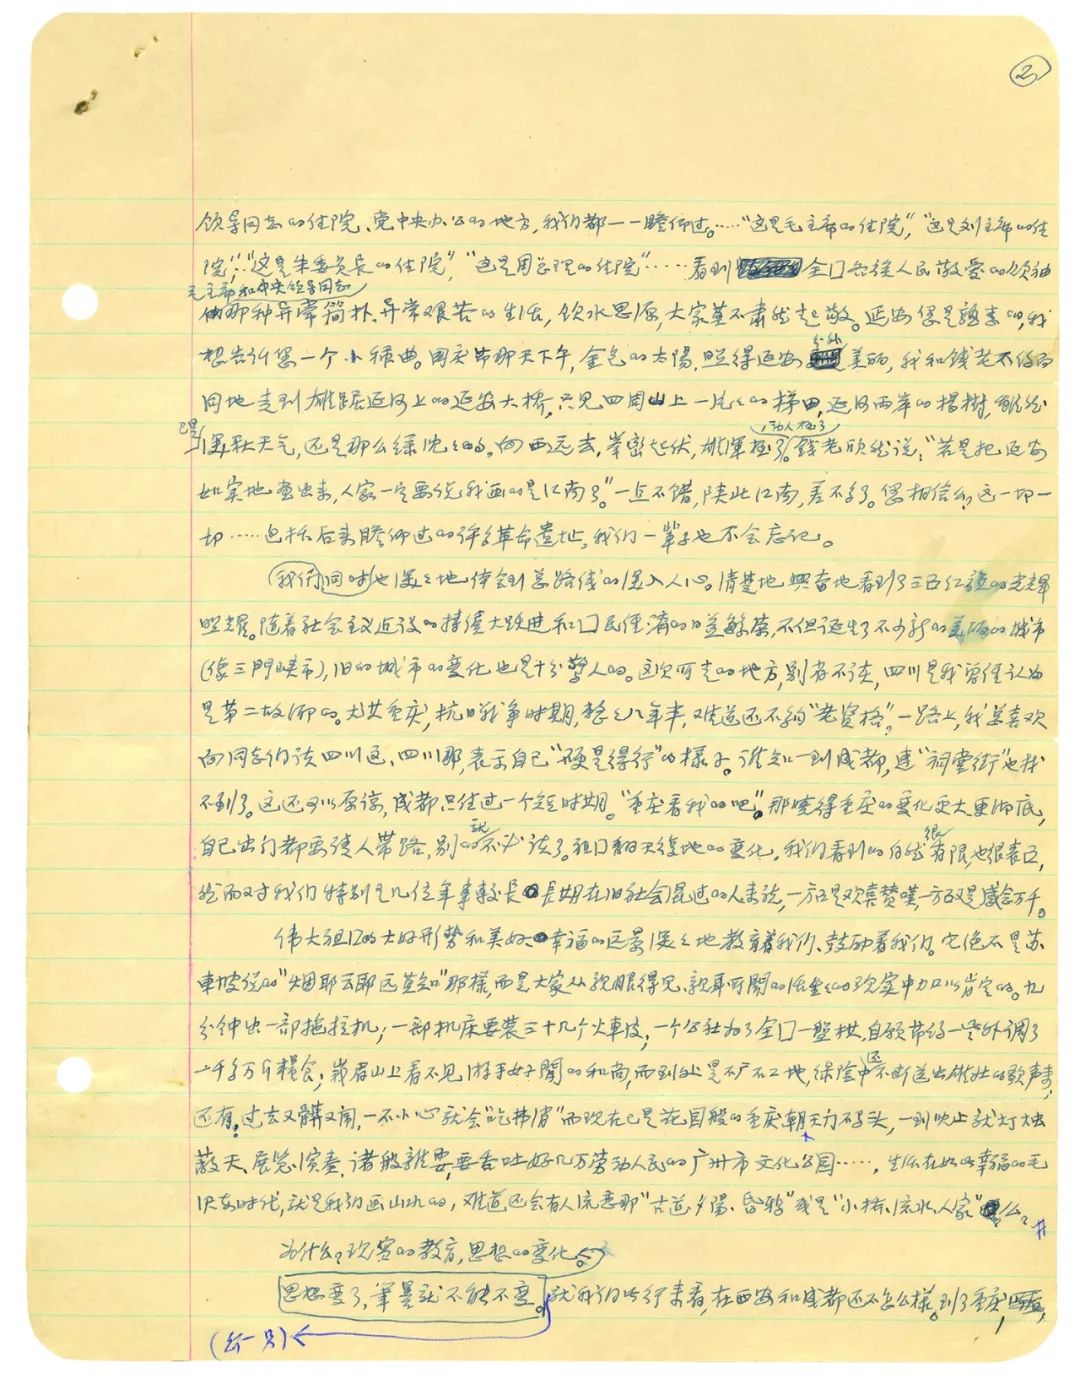 ②
领导同志的住院、党中央办公的地方，我们都一一瞻仰过。……“这是毛主席的住院”，“这是刘主席的住
院”，“这是朱委员长的住院”，“这是周总理的住院”……看到全囗各族人民敬爱的领袖
毛主席和中央领导同志
那种异常简朴、异常艰苦的生活，饮水思源，大家莫不肃然起敬。延安您是熟悉的，我
想告诉您一个小插曲。国庆节那天下午，金色的太陽，照得延安分外美丽，我和钱老不约而
同地走到雄踞延河上的延安大桥，只见四周山上一片片的梯田，延河两岸的楊樹，虽然
已是
深秋天气，还是那么绿沈沈的。向西远去，峯峦起伏，雄浑极了。钱老欣然说：“若是把延安
动人极了
如实地画出来，人家一定要说我画的是江南了。”一点不错，陕北江南，差不多了。您相信么，这一切一
切……包括后来瞻仰过的许多革命遗址，我们一輩子也不会忘记。
我们同时也深深地体会到总路线的深入人心。清楚地兴奋地看到了三面红旗的光輝
照耀。随着社会主义建设的持续大跃进和囗民经济的日益繁荣，不但诞生了不少新的美丽的城市
（像三門峡市），旧的城市的变化也是十分驚人的。这次所走的地方，别者不谈，四川是我曾经认为
是第二故乡的。尤其重庆，抗日战争时期，整整八年半，难道还不够“老資格”，一路上，我总喜欢
向同志们谈四川这、四川那，表示自己“硬是得行”的樣子。谁知一到成都，連“祠堂街”也找
不到了。这还可以原谅，成都只住过一个短时期。“重庆看我的吧”。那晓得重庆的变化更大更彻底，
自己出门都要请人带路，别的就不必谈了。祖囗翻天復地的变化，我们看到的自然很有限也很表面，
然而对于我们特别是几位年事較长長期在旧社会混过的人来说，一方面是欢喜赞嘆，一方面又是感念万千。
伟大祖囗的大好形势和美好、幸福的远景深深地教育着我们、鼓励着我们。它绝不是苏
東坡说的“烟耶云耶远莫知”那樣，而是大家从親眼得见、親耳所聞的活生生的现实中加以肯定的。九
分钟出一部拖拉机；一部机床要装三十几个火車皮，一个公社为了全囗一盤棋，自願节约一些外調了
一千多万斤糧食；峩眉山上看不见游手好閒的和尚，而到处是工地，保险中还不断送出雄壮的歌声来，
还有，过去又髒又闹，一不小心就会“吃拂背”而现在已是花园般的重庆朝天门码头，一到晚上就灯烛
蔽天、展览、演奏、诸般雜耍，要吞吐好几万劳动人民的广州市文化公园……，生活在如此幸福的毛
泽东时代，就是我们画山水的，难道还会有人流恋那“古道、夕陽、昏鸦”或是“小桥、流水、人家”么？
为什么？现实的教育，思想的变化。
思想变了，筆墨就不能不变。就我们的此行来看，在西安和成都还不怎么樣。到了重庆，
（另一頁）